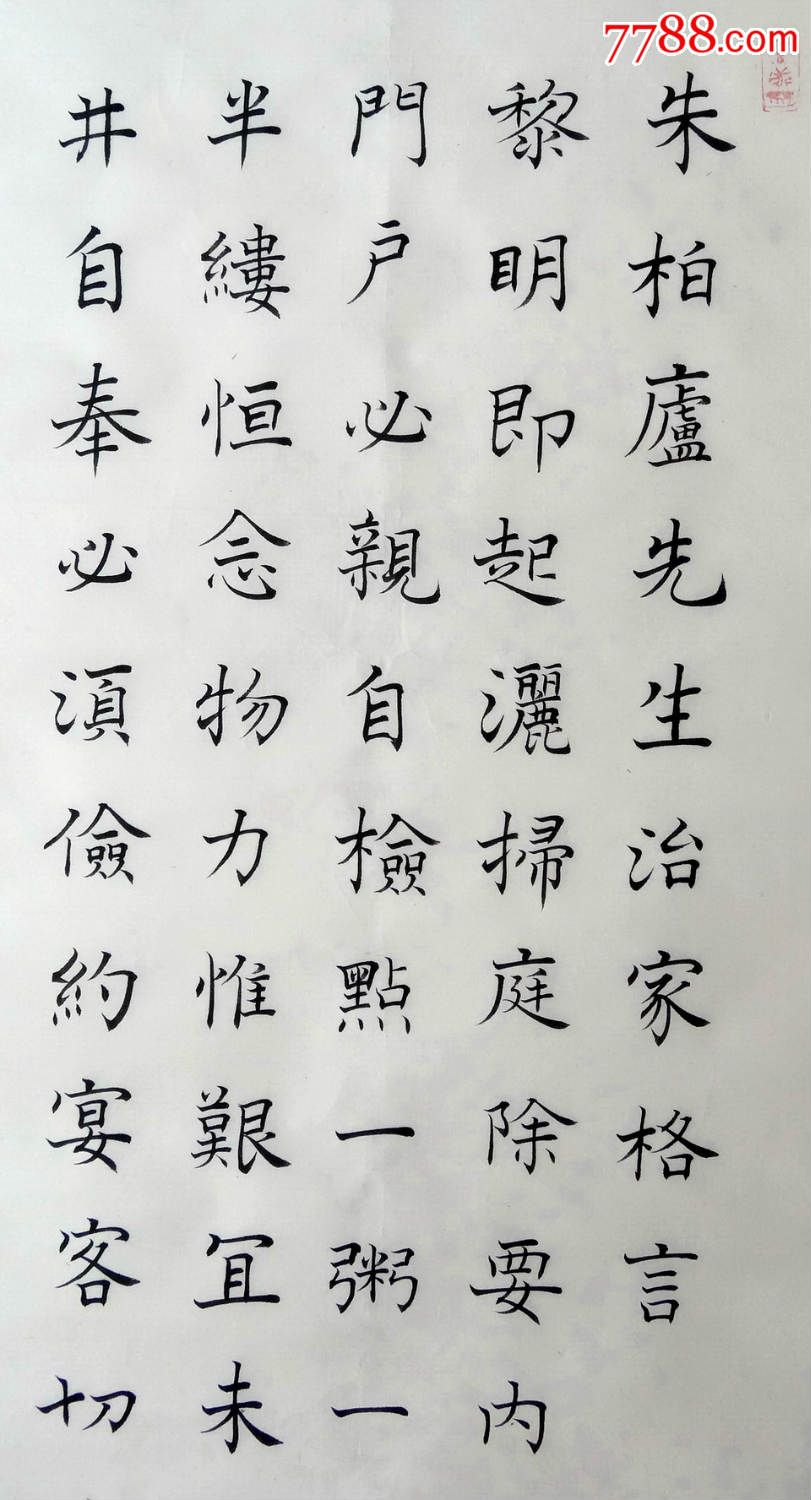 7788.com
朱柏廬先生治家格言
黎明即起灑掃庭除要内
門户必親自檢點一粥一
半縷恒念物力惟艱宜未
井自奉必湏儉約宴客切